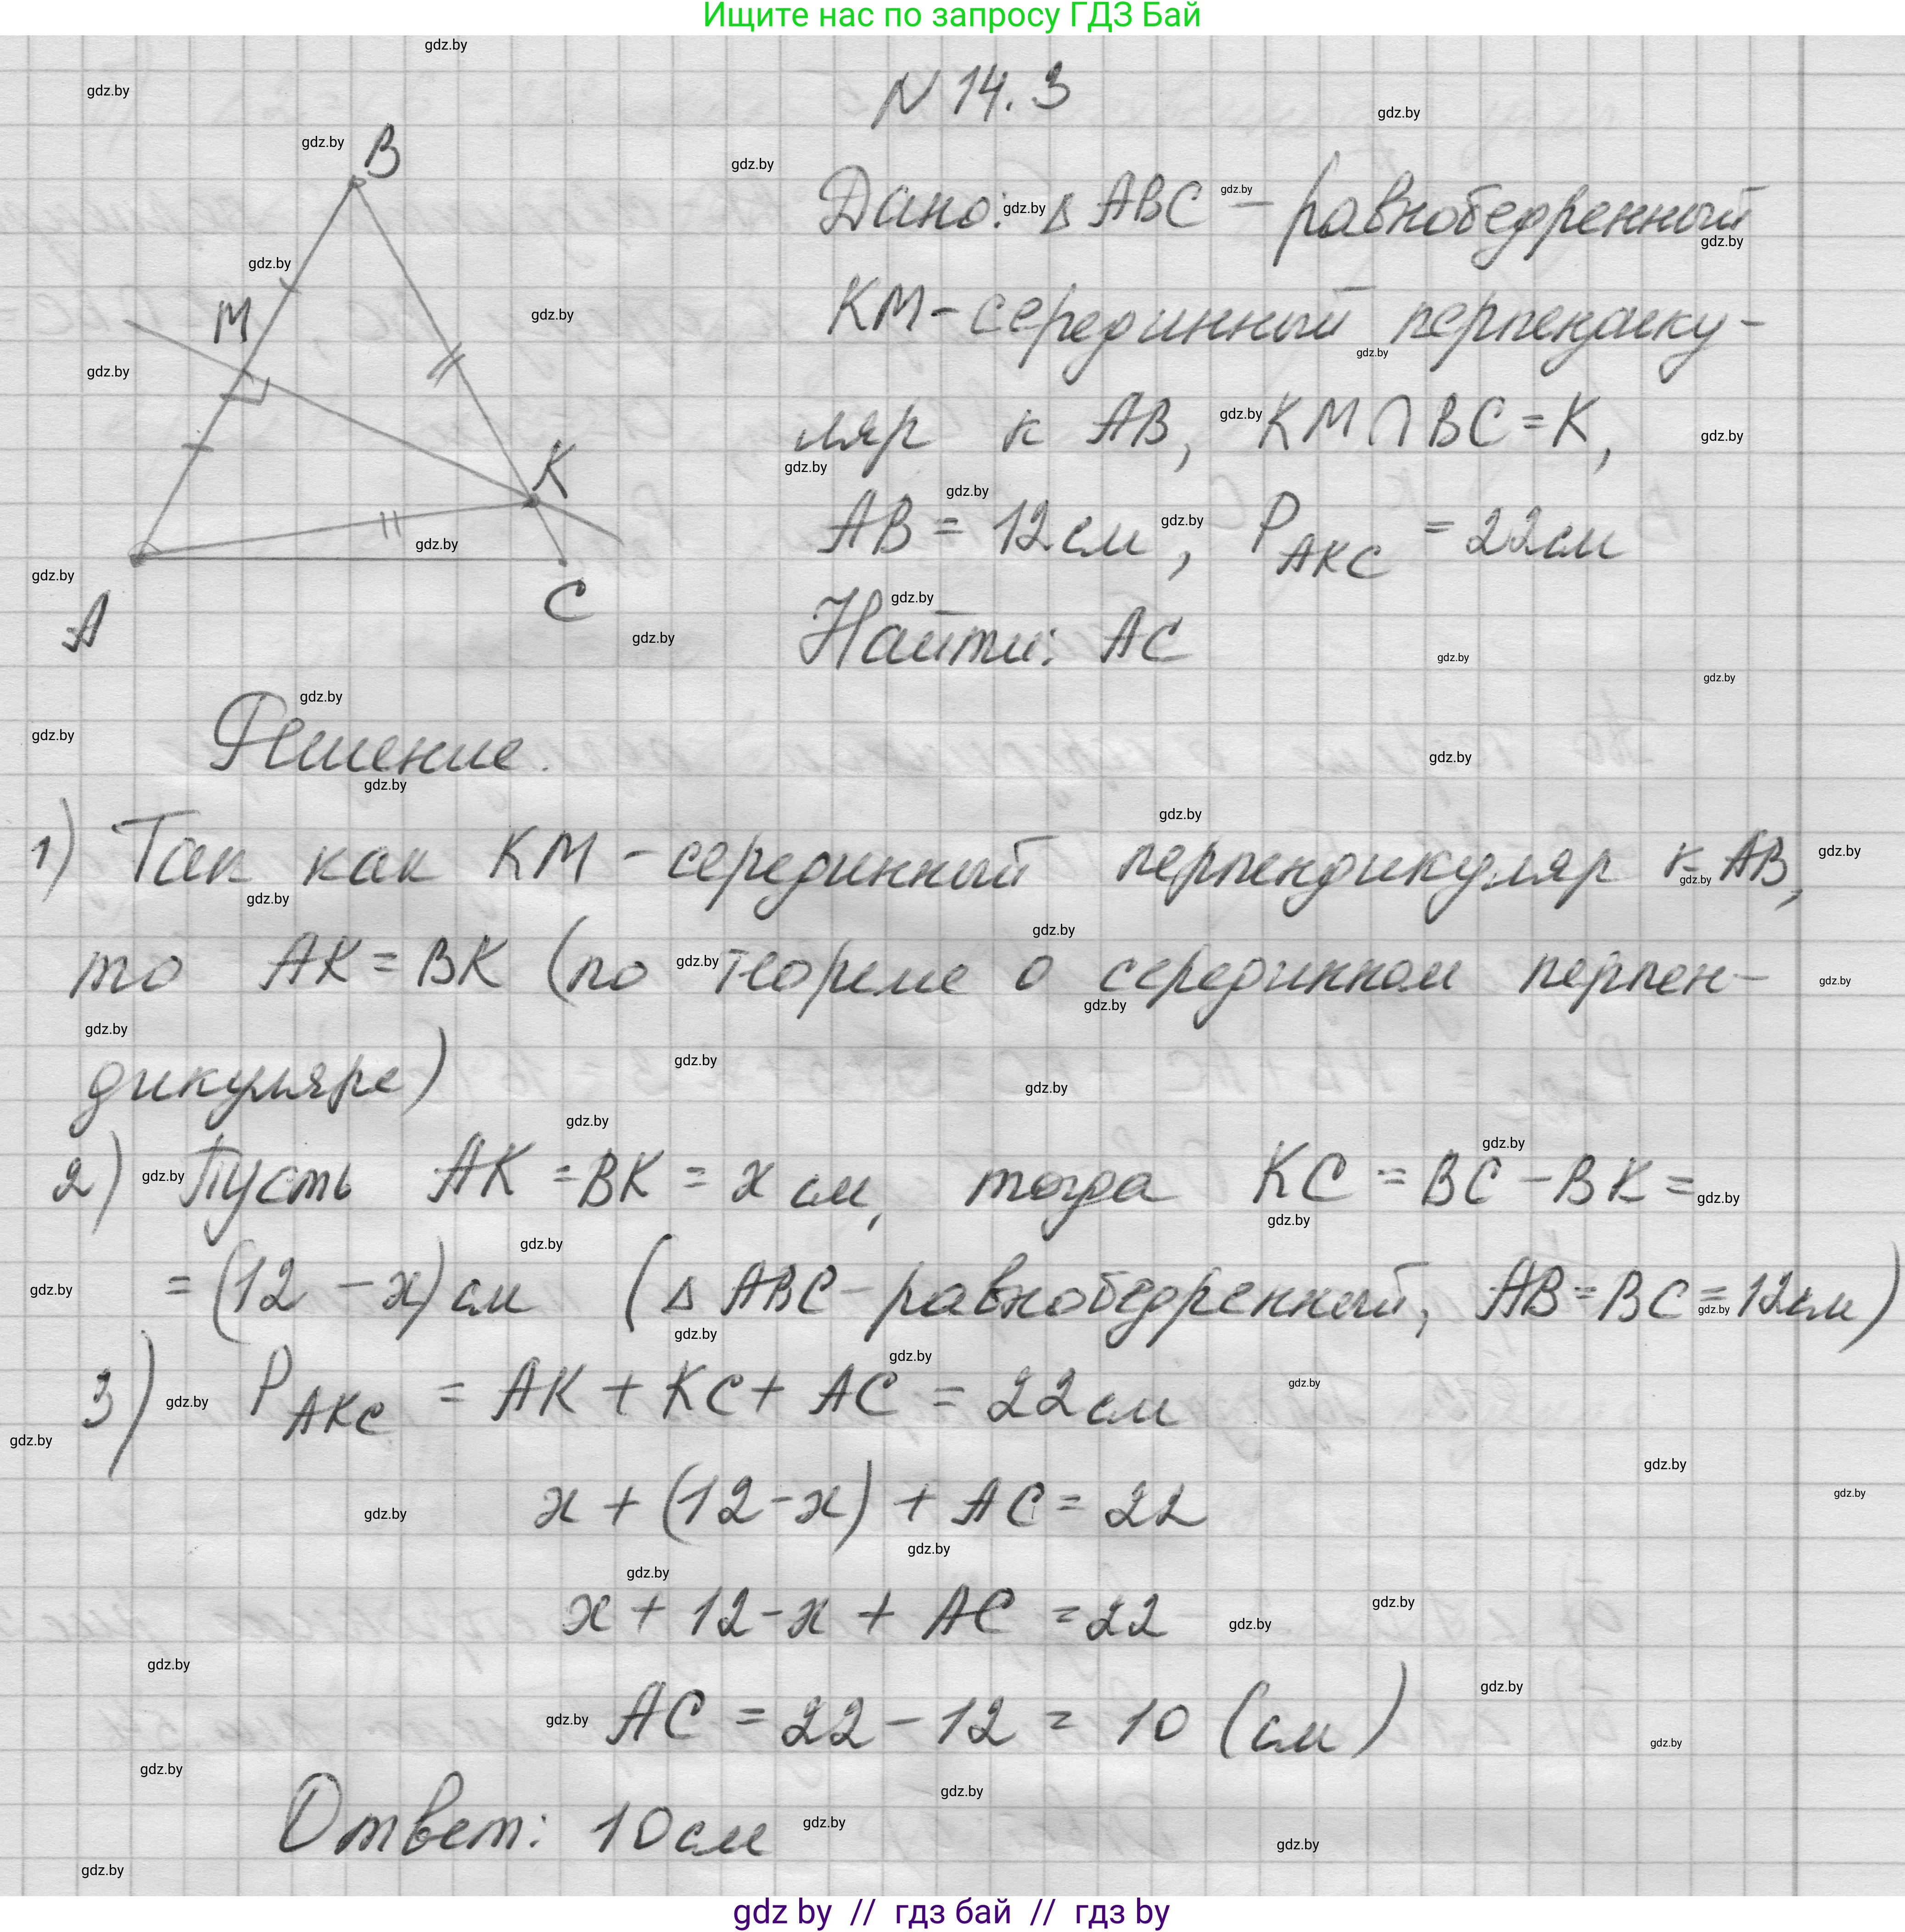 Ищите нас по запросу ГДЗ Бай
N 14.3
B
M
K
A
C
Дано: Δ ABC – равнобедренный
KM - серединный перпендику-
ляр к AB, KM ∩ BC = K,
AB = 12 см, P AKC = 22 см
Найти: AC
Решение.
1) Так как KM - серединный перпендикуляр к AB,
то AK = BK (по теореме о серединном перпен-
дикуляре)
2) Пусть AK = BK = x см, тогда KC = BC - BK =
= (12 - x) см (Δ ABC - равнобедренный, AB = BC = 12 см)
3) P AKC = AK + KC + AC = 22 см
x + (12 - x) + AC = 22
x + 12 - x + AC = 22
AC = 22 - 12 = 10 (см)
Ответ: 10 см
gdz by // гдз бай // гдз by